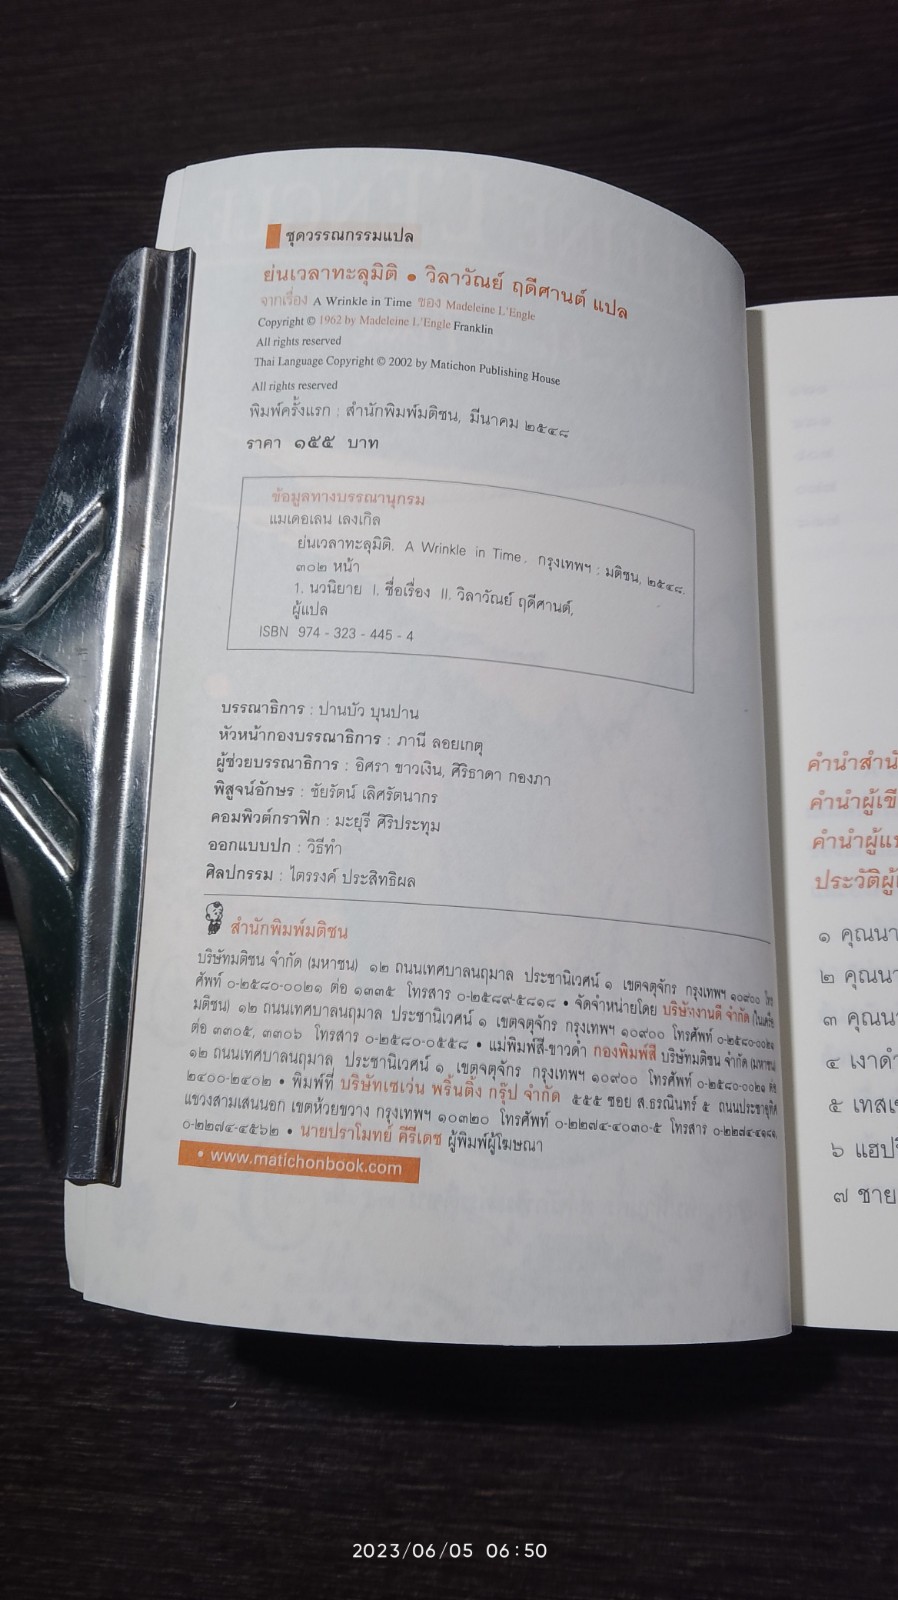 ชุดวรรณกรรมแปล
ย่นเวลาทะลุมิติ • วิลาวัณย์ ฤดีศานต์ แปล
จากเรื่อง A Wrinkle in Time ของ Madeleine L'Engle
Copyright © 1962 by Madeleine L'Engle Franklin
All rights reserved
Thai Language Copyright © 2002 by Matichon Publishing House
All rights reserved
พิมพ์ครั้งแรก : สำนักพิมพ์มติชน, มีนาคม ๒๕๔๘
ราคา ๑๕๕ บาท
ข้อมูลทางบรรณานุกรม
แมเดอเลน เลงเกิล
ย่นเวลาทะลุมิติ. A Wrinkle in Time. กรุงเทพฯ : มติชน, ๒๕๔๘.
๓๐๒ หน้า
1. นวนิยาย I. ชื่อเรื่อง II. วิลาวัณย์ ฤดีศานต์,
ผู้แปล
ISBN 974 - 323 - 445 - 4
บรรณาธิการ : ปานบัว บุนปาน
หัวหน้ากองบรรณาธิการ : ภานี ลอยเกตุ
ผู้ช่วยบรรณาธิการ : อิศรา ขาวเงิน, ศิริธาดา กองภา
พิสูจน์อักษร : ชัยรัตน์ เลิศรัตนากร
คอมพิวต์กราฟิก : มะยุรี ศิริประทุม
ออกแบบปก : วิธีทำ
ศิลปกรรม : ไตรรงค์ ประสิทธิผล
สำนักพิมพ์มติชน
บริษัทมติชน จำกัด (มหาชน) ๑๒ ถนนเทศบาลนฤมาล ประชานิเวศน์ ๑ เขตจตุจักร กรุงเทพฯ ๑๐๙๐๐ โทร
ศัพท์ ๐-๒๕๘๐-๐๐๒๑ ต่อ ๑๓๓๕ โทรสาร ๐-๒๕๘๙-๕๘๑๘ • จัดจำหน่ายโดย บริษัทงานดี จำกัด (ในเครือ
มติชน) ๑๒ ถนนเทศบาลนฤมาล ประชานิเวศน์ ๑ เขตจตุจักร กรุงเทพฯ ๑๐๙๐๐ โทรศัพท์ ๐-๒๕๘๐-๐๐๒๑
ต่อ ๓๓๐๕, ๓๓๐๖ โทรสาร ๐-๒๕๘๐-๐๕๕๘ • แม่พิมพ์สี-ขาวดำ กองพิมพ์สี บริษัทมติชน จำกัด (มหาชน)
๑๒ ถนนเทศบาลนฤมาล ประชานิเวศน์ ๑ เขตจตุจักร กรุงเทพฯ ๑๐๙๐๐ โทรศัพท์ ๐-๒๕๘๐-๐๐๒๑ ต่อ
๒๔๐๐-๒๔๐๒ • พิมพ์ที่ บริษัทเซเว่น พริ้นติ้ง กรุ๊ป จำกัด ๕๕๕ ซอย ส.ธรณินทร์ ๕ ถนนประชาอุทิศ
แขวงสามเสนนอก เขตห้วยขวาง กรุงเทพฯ ๑๐๓๒๐ โทรศัพท์ ๐-๒๒๗๔-๔๐๓๐-๕ โทรสาร
๐-๒๒๗๔-๔๕๖๒ • นายปราโมทย์ คีรีเดช ผู้พิมพ์ผู้โฆษณา
• www.matichonbook.com
คำนำสำนั
คำนำผู้เขี
คำนำผู้แป
ประวัติผู้เ
๑ คุณนา
๒ คุณนา
๓ คุณนา
๔ เงาดำ
๕ เทสเ
๖ แฮปปี
๗ ชาย
2023/06/05 06:50